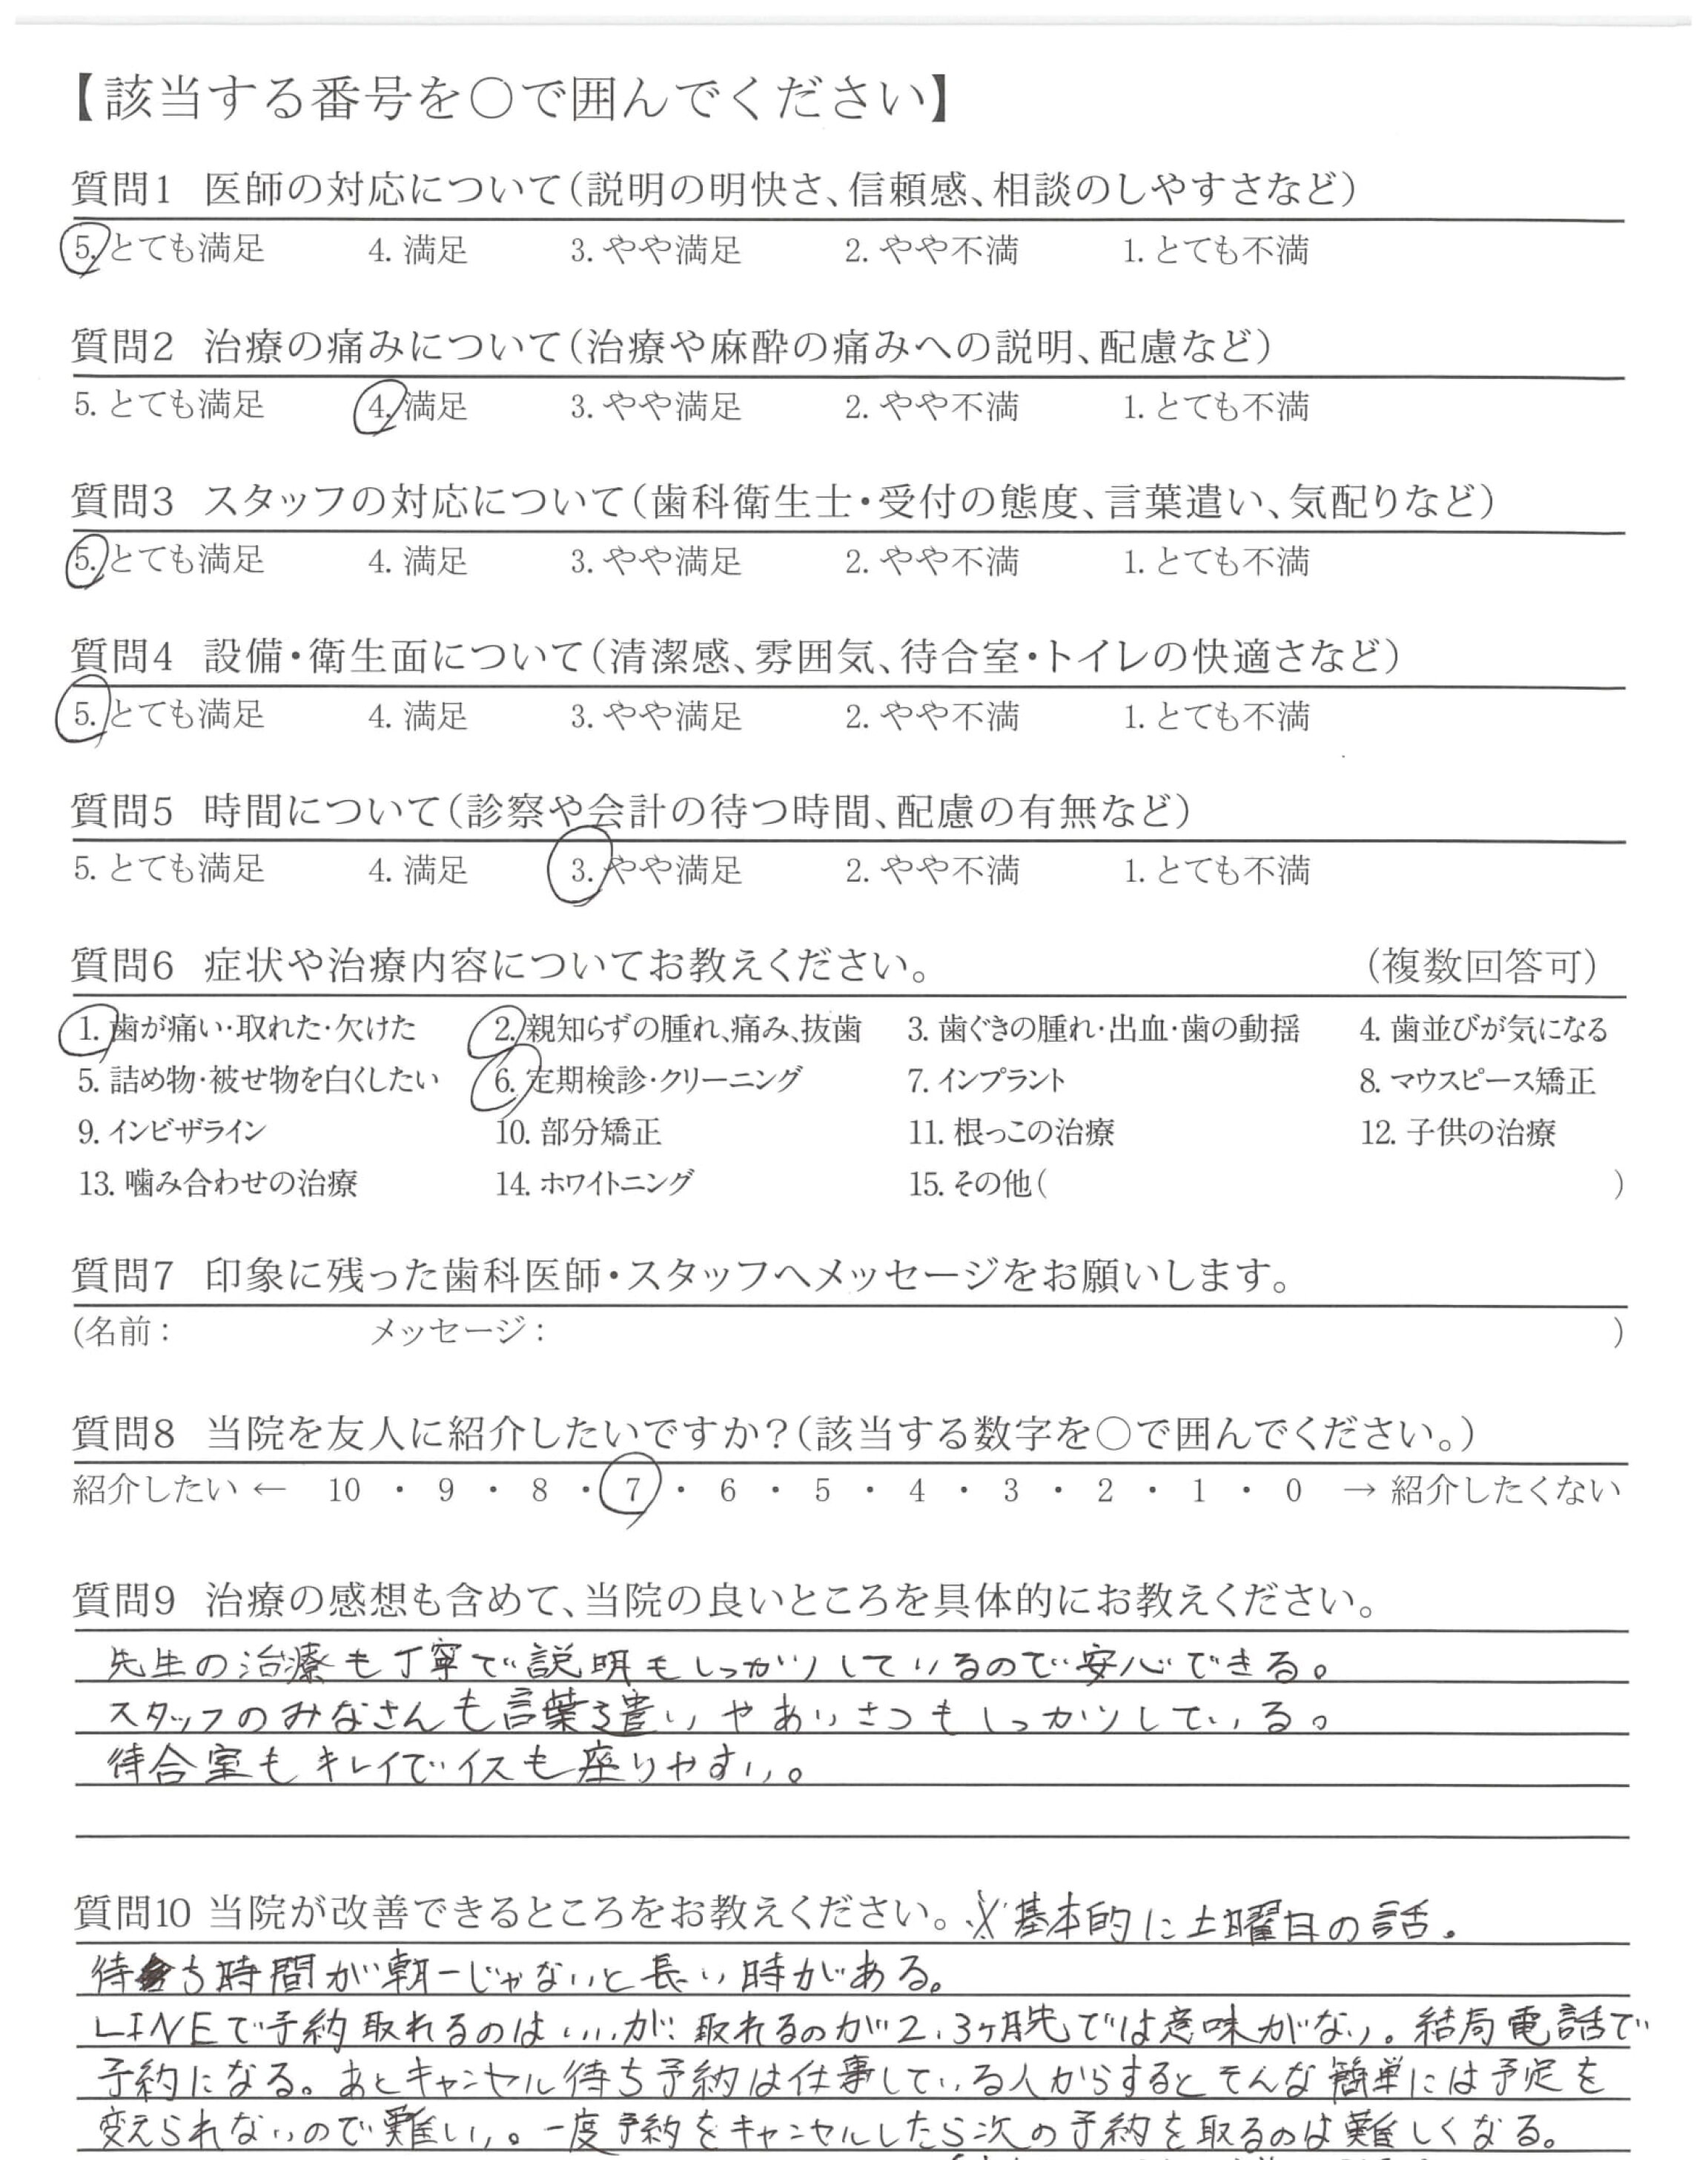 【該当する番号を〇で囲んでください】
質問1 医師の対応について(説明の明快さ、信頼感、相談のしやすさなど)
5. とても満足 4. 満足 3. やや満足 2. やや不満 1. とても不満
質問2 治療の痛みについて(治療や麻酔の痛みへの説明、配慮など)
5. とても満足 4. 満足 3. やや満足 2. やや不満 1. とても不満
質問3 スタッフの対応について(歯科衛生士・受付の態度、言葉遣い、気配りなど)
5. とても満足 4. 満足 3. やや満足 2. やや不満 1. とても不満
質問4 設備・衛生面について(清潔感、雰囲気、待合室・トイレの快適さなど)
5. とても満足 4. 満足 3. やや満足 2. やや不満 1. とても不満
質問5 時間について(診察や会計の待つ時間、配慮の有無など)
5. とても満足 4. 満足 3. やや満足 2. やや不満 1. とても不満
質問6 症状や治療内容についてお教えください。 (複数回答可)
1. 歯が痛い・取れた・欠けた 2. 親知らずの腫れ、痛み、抜歯 3. 歯ぐきの腫れ・出血・歯の動揺 4. 歯並びが気になる
5. 詰め物・被せ物を白くしたい 6. 定期検診・クリーニング 7. インプラント 8. マウスピース矯正
9. インビザライン 10. 部分矯正 11. 根っこの治療 12. 子供の治療
13. 噛み合わせの治療 14. ホワイトニング 15. その他( )
質問7 印象に残った歯科医師・スタッフへメッセージをお願いします。
(名前: メッセージ: )
質問8 当院を友人に紹介したいですか?(該当する数字を〇で囲んでください。)
紹介したい ← 10 ・ 9 ・ 8 ・ 7 ・ 6 ・ 5 ・ 4 ・ 3 ・ 2 ・ 1 ・ 0 → 紹介したくない
質問9 治療の感想も含めて、当院の良いところを具体的にお教えください。
先生の治療も丁寧で説明もしっかりしているので安心できる。
スタッフのみなさんも言葉遣いやあいさつもしっかりしている。
待合室もキレイでイスも座りやすい。
質問10 当院が改善できるところをお教えください。※基本的に土曜日の話。
待ち時間が朝一じゃないと長い時がある。
LINEで予約取れるのはいいが、取れるのが2、3ヶ月先では意味がない。結局電話で
予約になる。あとキャンセル待ち予約は仕事している人からするとそんな簡単には予定を
変えられないので難しい。一度予約をキャンセルしたら次の予約を取るのは難しくなる。